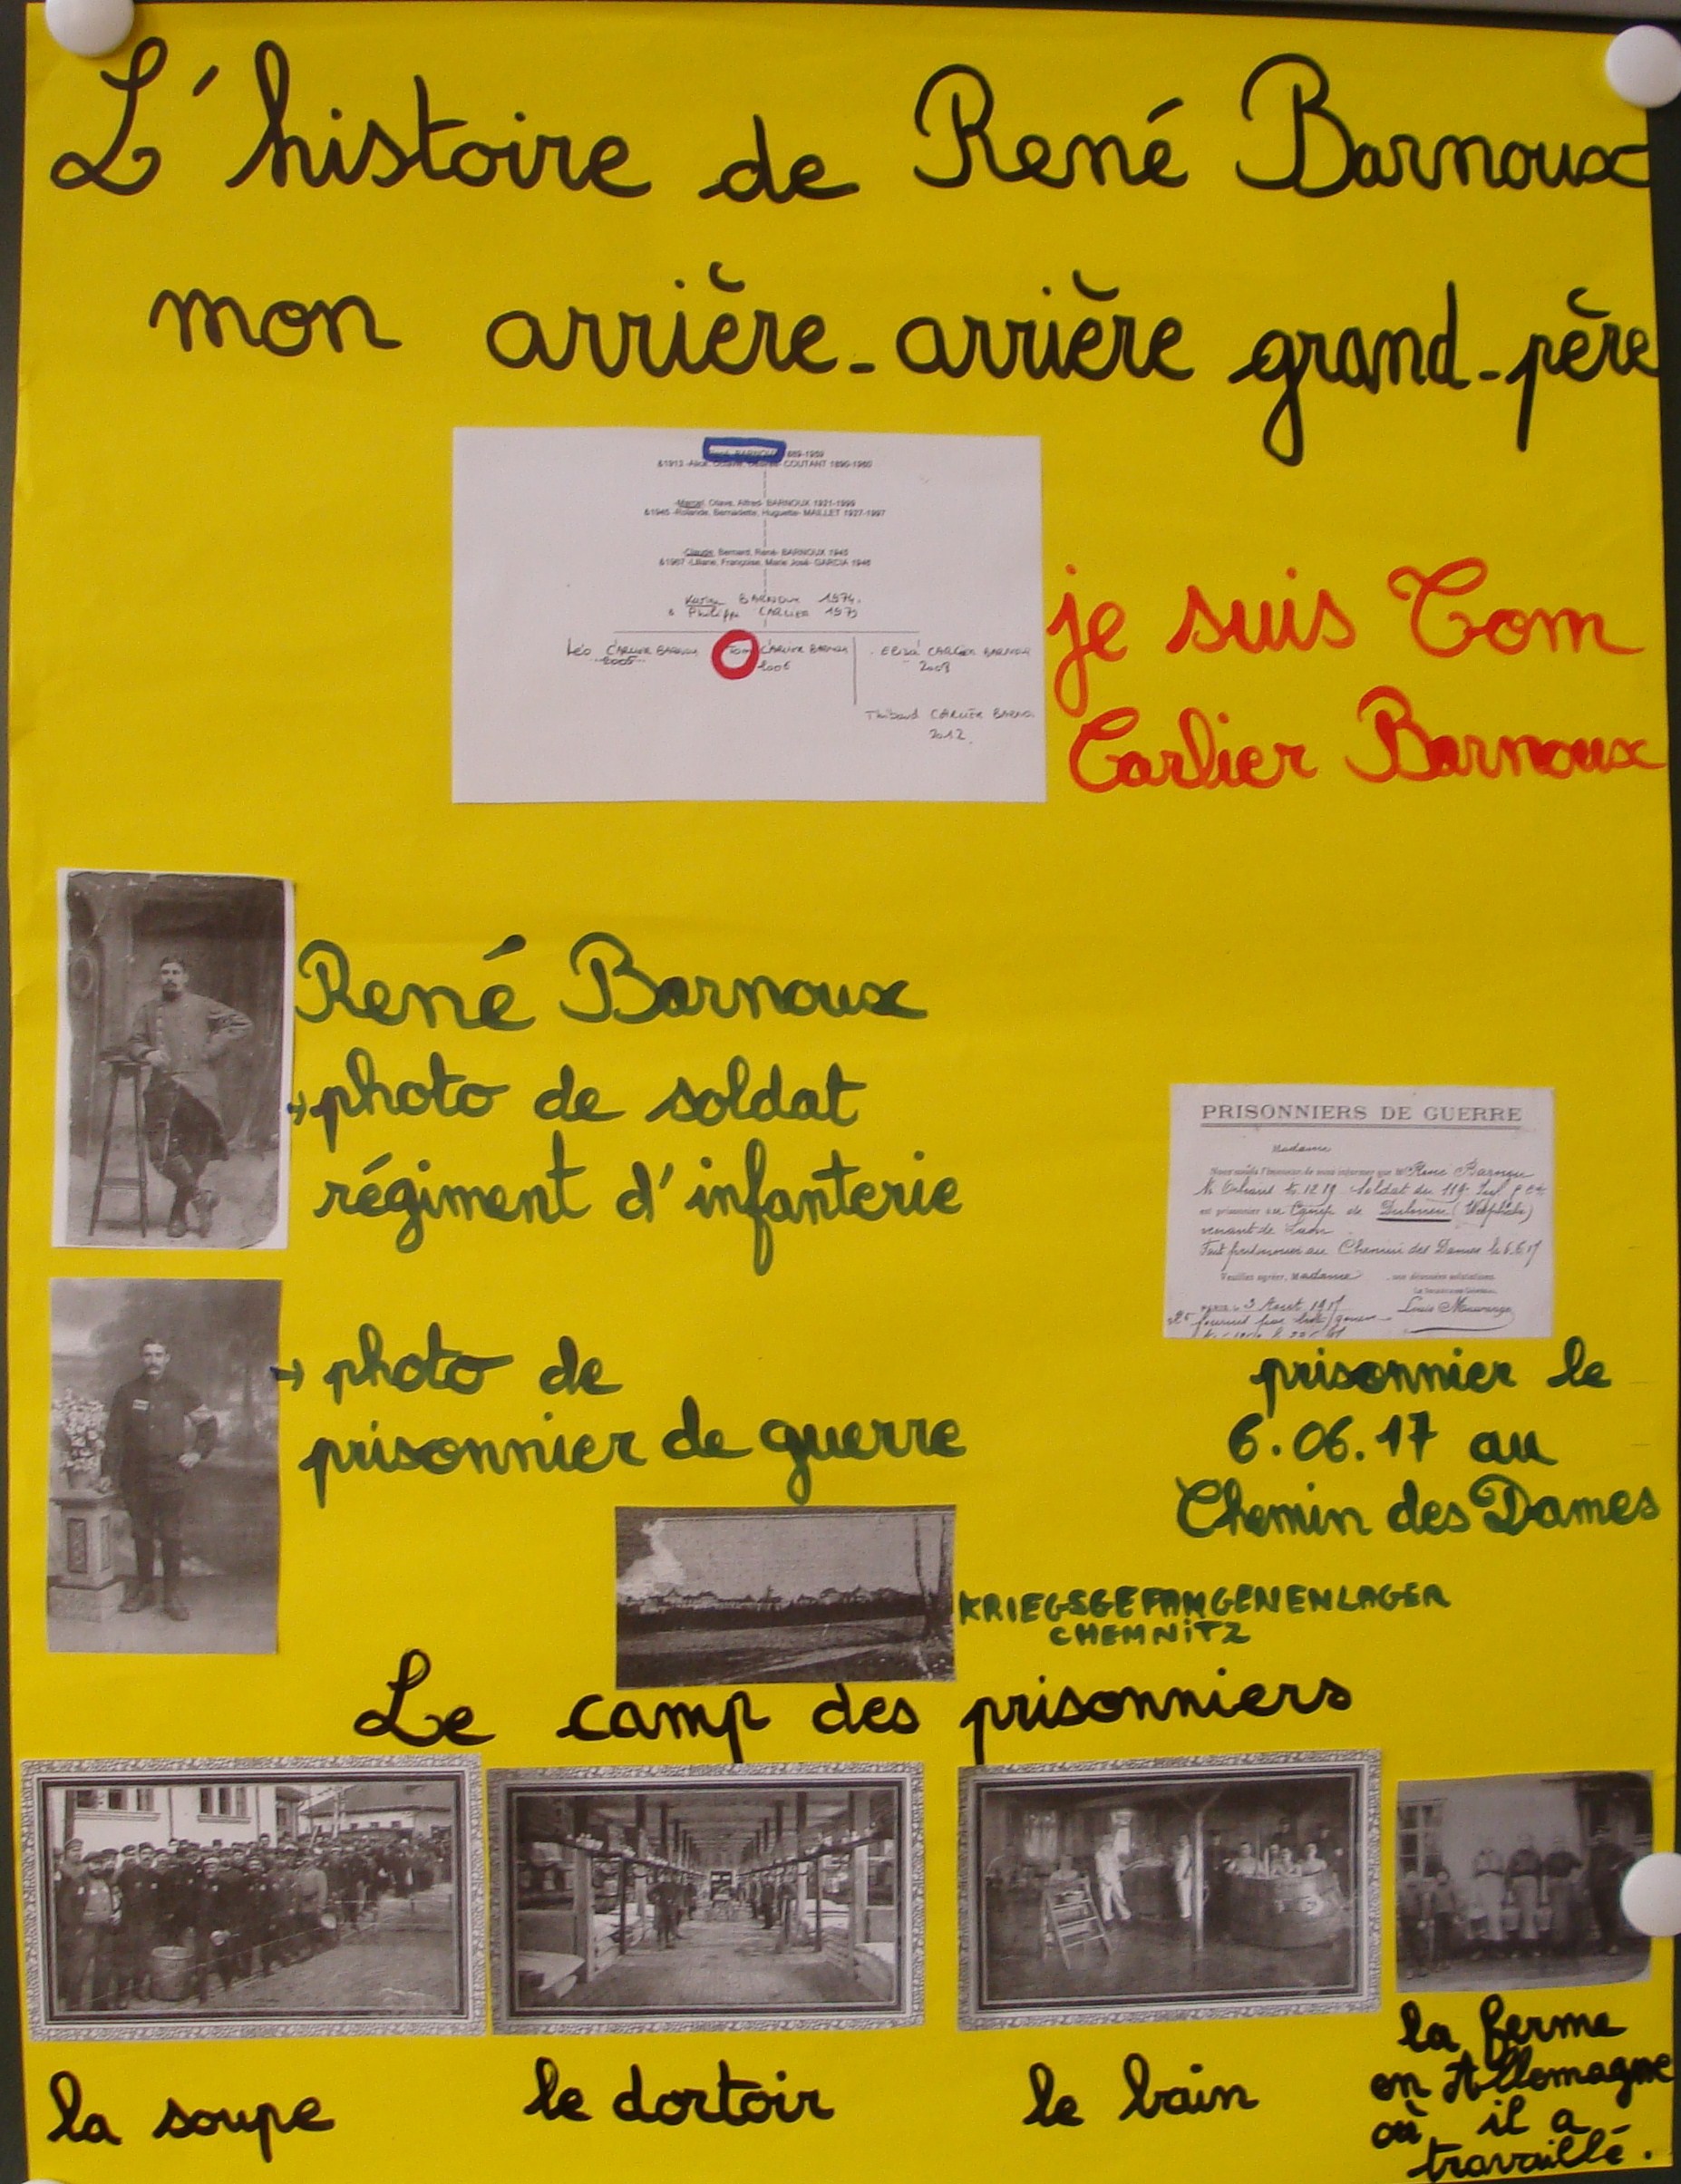 L'histoire de René Barnoux
mon arrière-arrière grand-père
René BARNOUX 1889-1959
&1913 -Alice, Octavie, Désirée- COUTANT 1890-1960
-Marcel, Olave, Alfred- BARNOUX 1921-1999
&1945 -Rolande, Bernadette, Huguette- MAILLET 1927-1997
-Claude, Bernard, René- BARNOUX 1945
&1967 -Liliane, Françoise, Marie José- GARCIA 1946
BARNOUX 1974.
& Philippe CARLIER 1973
Léo CARLIER BARNOUX
2005
Tom CARLIER BARNOUX
2006
CARLIER BARNOUX
Thibaud CARLIER BARNOUX
2012
je suis Tom
Carlier Barnoux
René Barnoux
→ photo de soldat
régiment d'infanterie
PRISONNIERS DE GUERRE
Madame
Nous avons l'honneur de vous informer que Mr René Barnou
Soldat du 119
est prisonnier au Camp de Dulmen (Westphalie)
venant de Laon
Fait prisonnier au Chemin des Dames le 6.6.17
Veuillez agréer, Madame, nos
Le Secrétaire Général
PARIS le 3 Août 1917
fourni par
→ photo de
prisonnier de guerre
prisonnier le
6.06.17 au
Chemin des Dames
KRIEGSGEFANGENENLAGER
CHEMNITZ
Le camp des prisonniers
la soupe
le dortoir
le bain
la ferme
en Allemagne
où il a
travaillé.